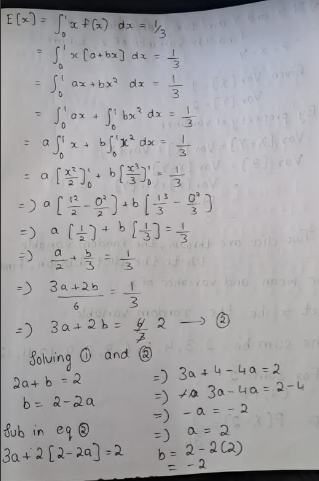 E[x] = ∫₀¹ x f(x) dx = 1/3
= ∫₀¹ x [a+bx] dx = 1/3
= ∫₀¹ ax + bx² dx = 1/3
= ∫₀¹ ax + ∫₀¹ bx² dx = 1/3
= a∫₀¹ x + b∫₀¹ x² dx = 1/3
= a [x²/2]₀¹ + b [x³/3]₀¹ = 1/3
=) a [1²/2 - 0²/2] + b [1³/3 - 0³/3]
=) a [1/2] + b [1/3] = 1/3
=) a/2 + b/3 = 1/3
=) 3a + 2b / 6 = 1/3
=) 3a + 2b = 2 → ②
Solving ① and ②
2a + b = 2
b = 2 - 2a
Sub in eq ②
3a + 2 [2 - 2a] = 2
=) 3a + 4 - 4a = 2
=) 3a - 4a = 2 - 4
=) -a = -2
=) a = 2
b = 2 - 2(2)
= -2